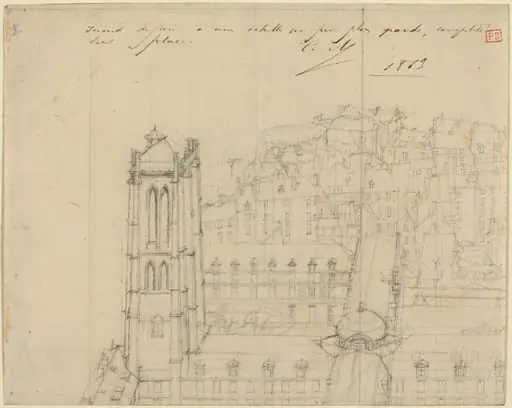 Second dessin à une échelle un peu plus grande, complété
sur place. C. M
1863
PB